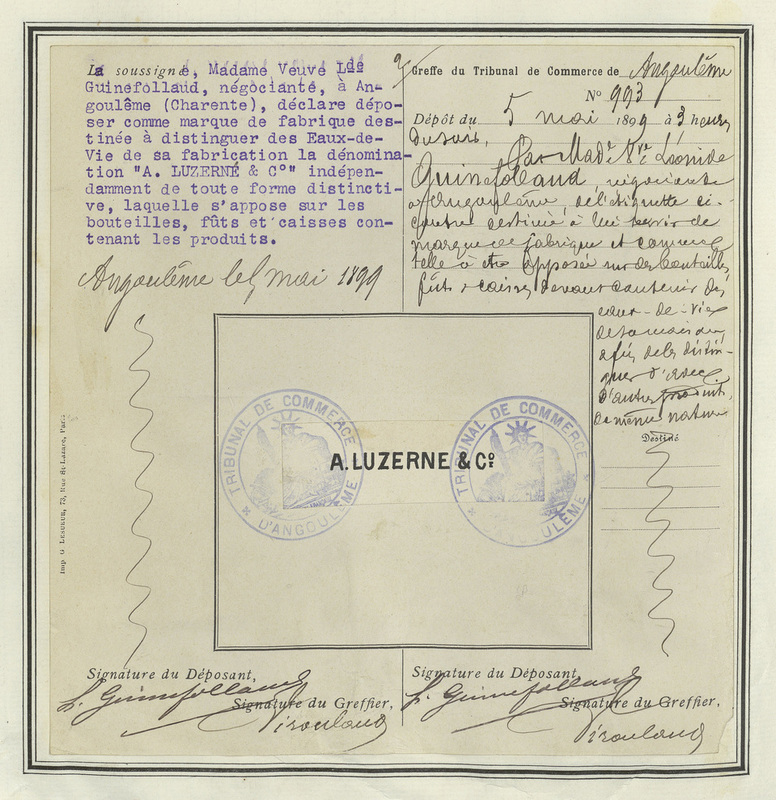 La soussignée, Madame Veuve Lde
Guinefollaud, négociante, à An-
goulême (Charente), déclare dépo-
ser comme marque de fabrique des-
tinée à distinguer des Eaux-de-
Vie de sa fabrication la dénomina-
tion "A. LUZERNÉ & Co" indépen-
damment de toute forme distincti-
ve, laquelle s'appose sur les
bouteilles, fûts et caisses con-
tenant les produits.
Angoulême le 5 mai 1899
Greffe du Tribunal de Commerce de Angoulême
No 993
Dépôt du 5 mai 1899 à 3 heures
du soir,
Par Made Vve Léonide
Guinefollaud, négociante
à Angoulême, de l'étiquette ci-
contre destinée à lui servir de
marque de fabrique et comme
telle à être apposée sur des bouteilles,
fûts & caisses devant contenir des
eaux-de-vie
de sa maison,
afin de les distin-
guer d'avec
d'autres produits
de même nature
Destiné
TRIBUNAL DE COMMERCE
D'ANGOULÊME
A. LUZERNE & Co.
TRIBUNAL DE COMMERCE
D'ANGOULÊME
Imp G Lesueur, 73, Rue St-Lazare, Paris
Signature du Déposant,
L. Guinefollaud
Signature du Greffier,
Signature du Déposant,
L. Guinefollaud
Signature du Greffier,